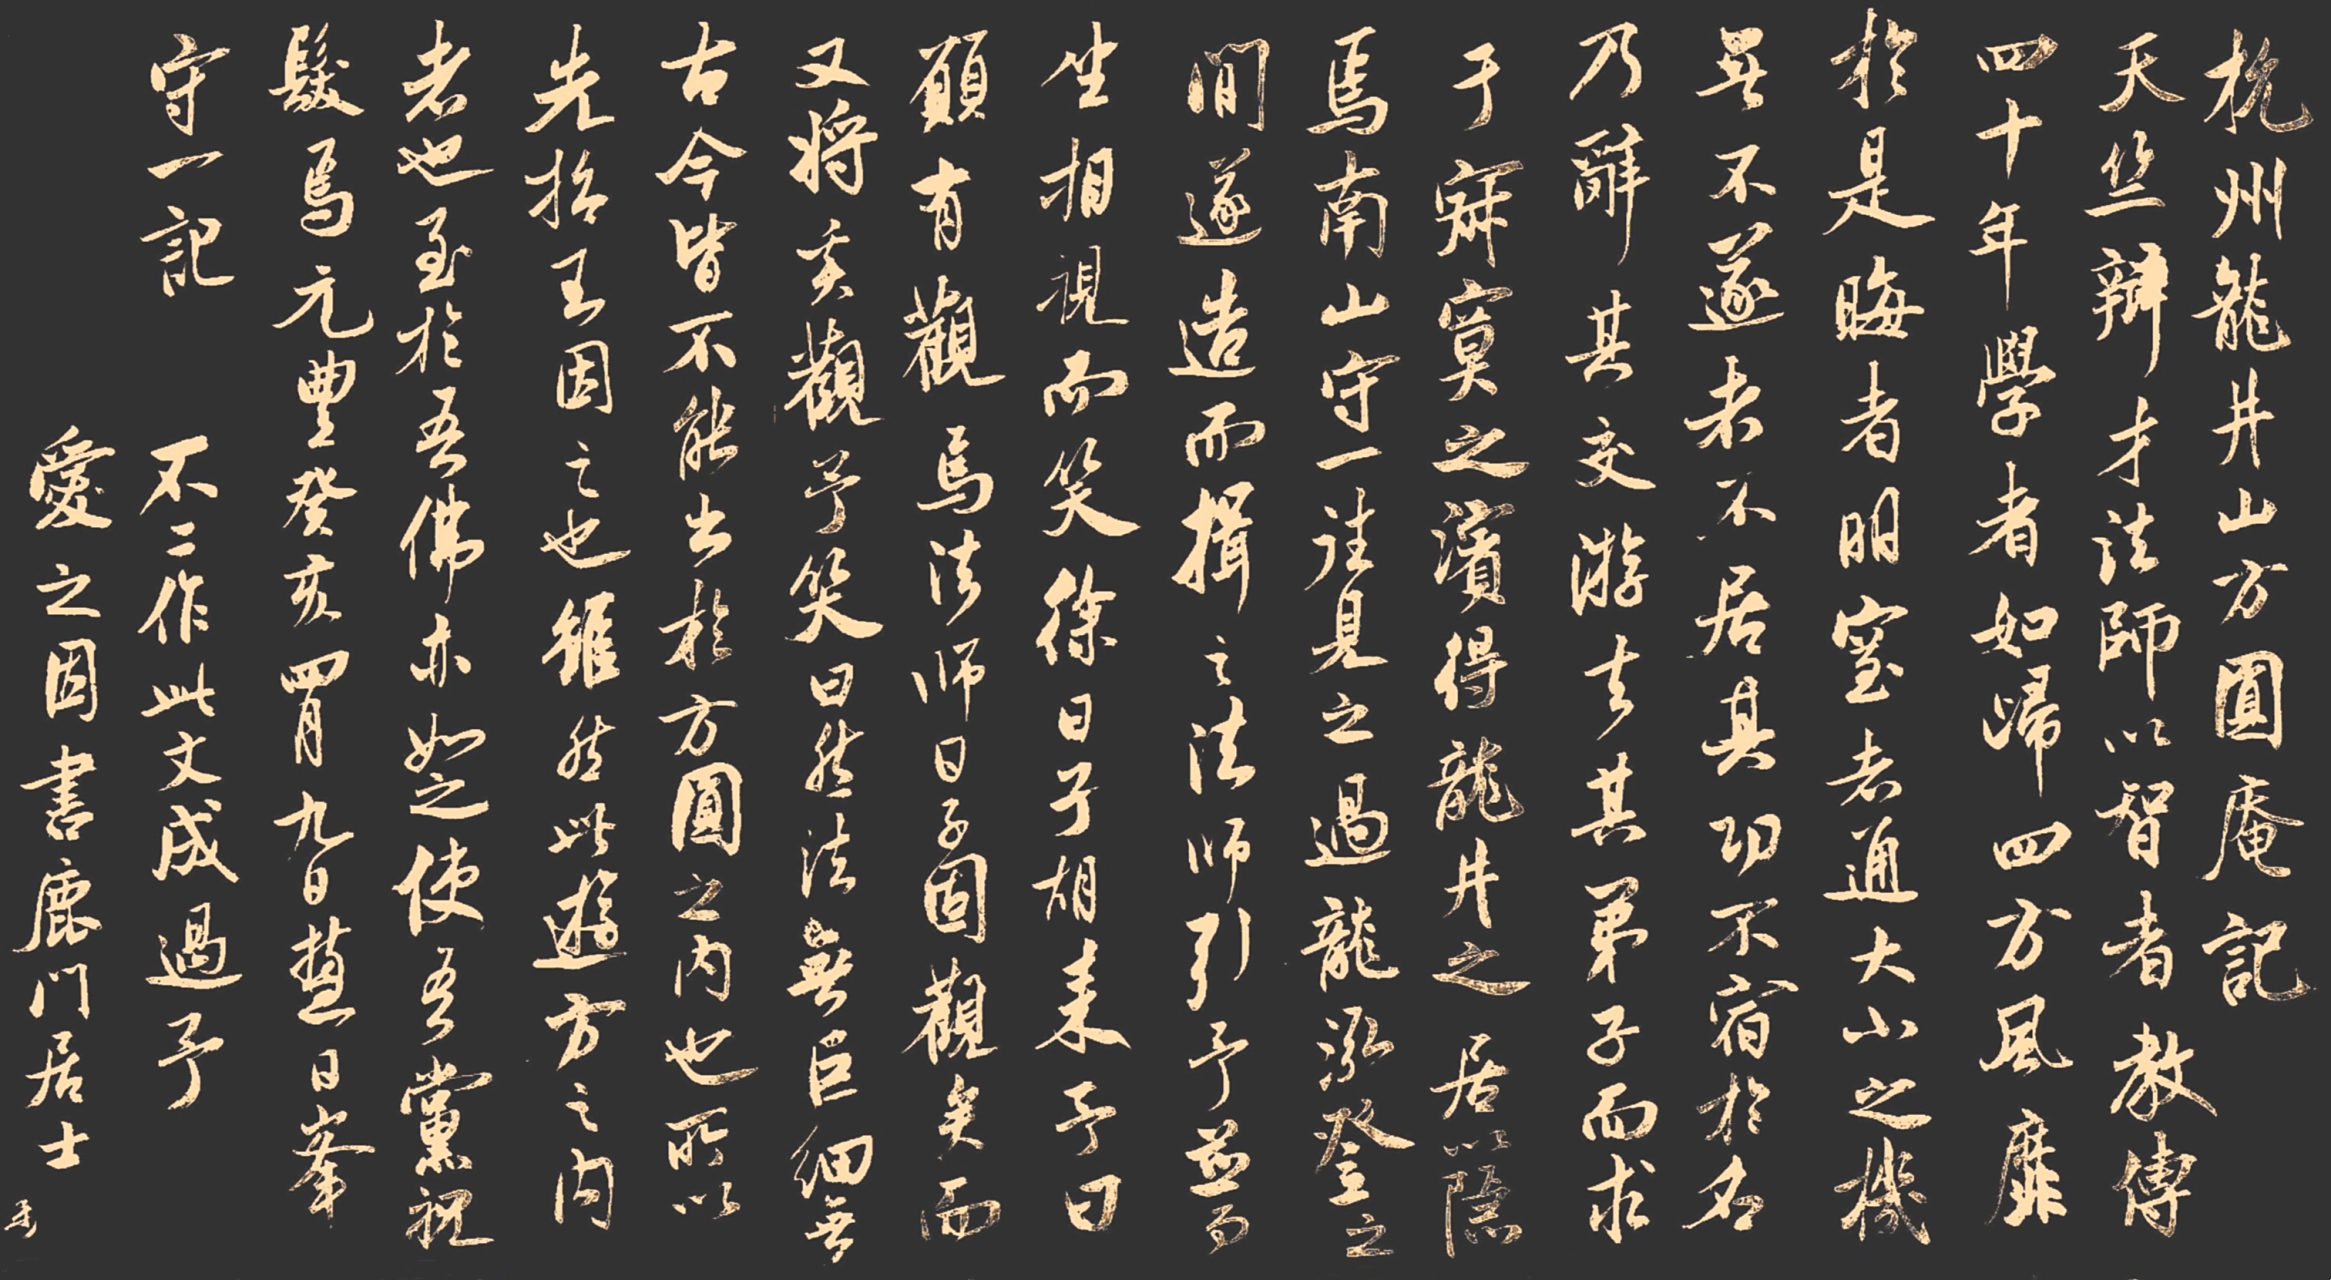 杭州龍井山方圓庵記
天竺辯才法師以智者教傳
四十年學者如歸四方風靡
於是晦者明窒者通大小之機
無不遂者不居其功不宿於名
乃辭其交游去其弟子而求
于寂寞之濱得龍井之居以隱
焉南山守一往見之過龍泓登之
閒遂造而揖之法師引予並而
坐相視而笑徐曰子胡來予曰
願有觀焉法師曰子固觀矣而
又將奚觀予笑曰然法無巨細無
古今皆不能出於方圓之內也所以
先指王因之也雖然此遊方之内
者也至於吾佛亦如之使吾黨祝
髮焉元豐癸亥四月九日慧日峯
守一記
不二作此文成過予
愛之因書鹿門居士